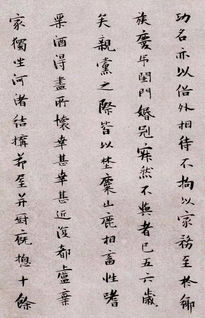 功名亦以俗外相待不拘以家務至於鄉
族慶弔閨門婚冠寂然不與者已五六歲
矣親黨之際皆以埜麋山鹿相畜性嗜
果酒得盡所懷幸甚幸甚近復都盧棄
家獨坐河渚結構茅至并廚廐揔十餘